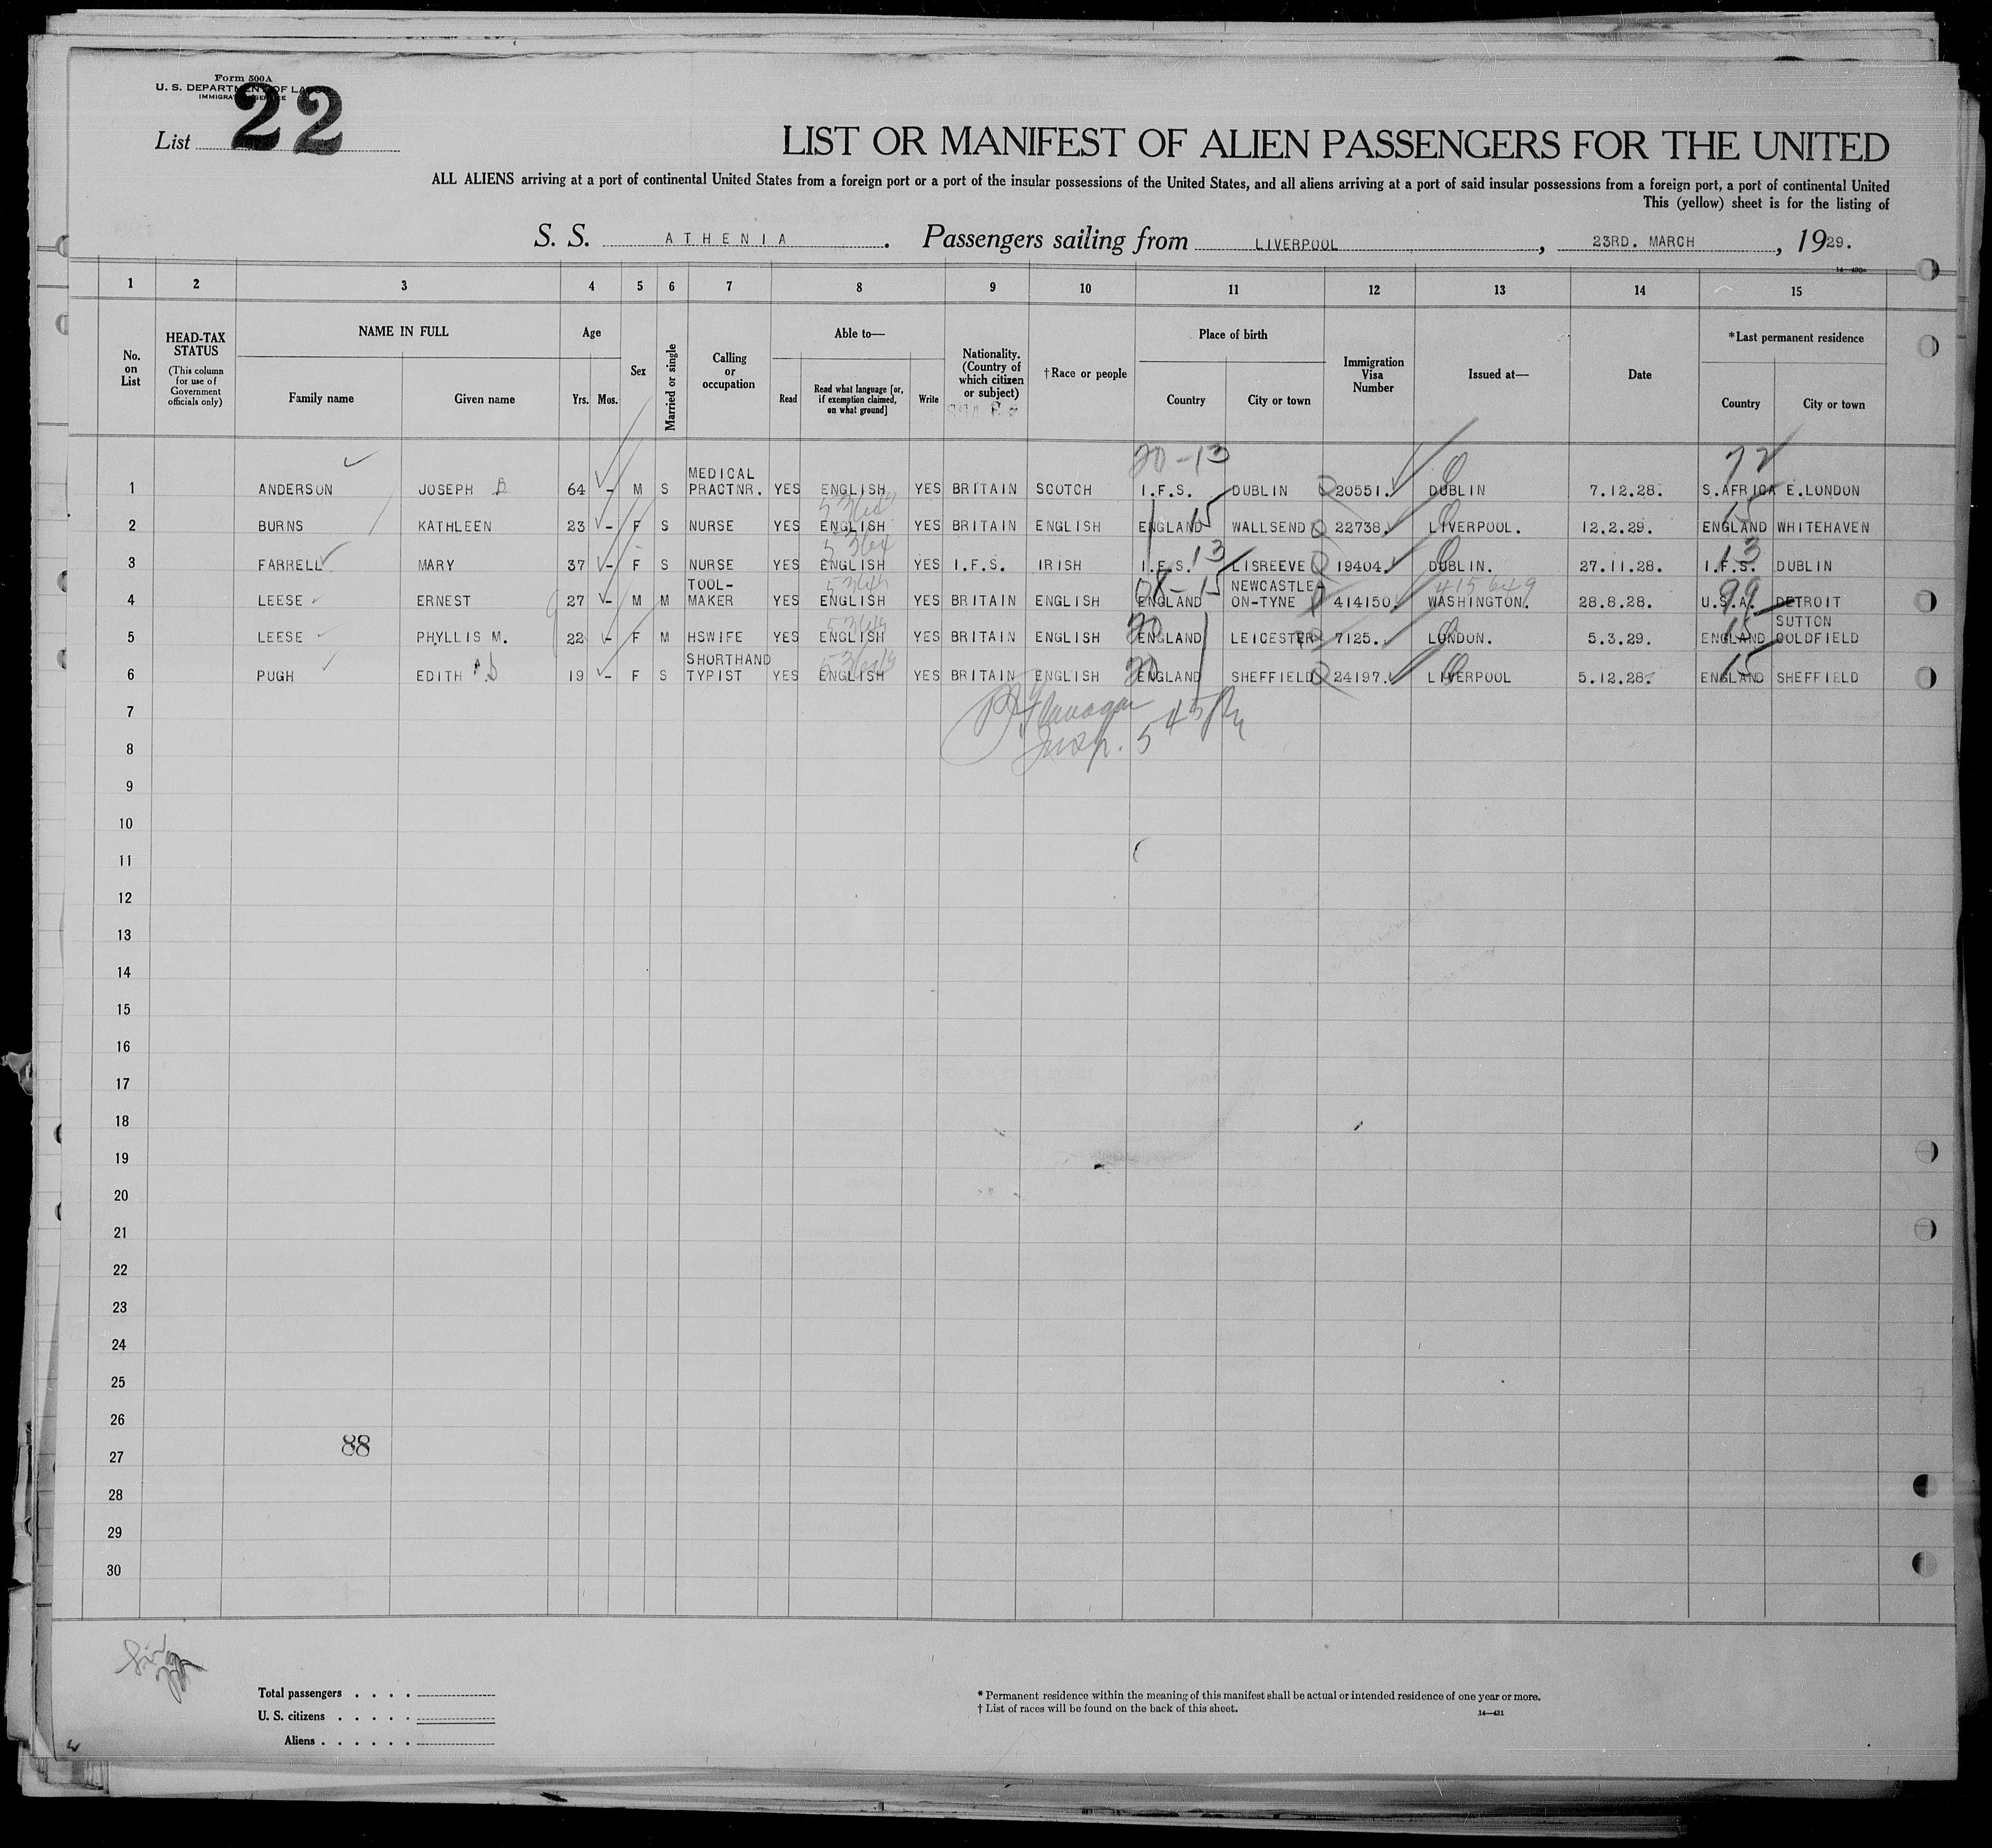 Form 500A
U. S. DEPARTMENT OF LABOR
IMMIGRATION SERVICE
List 22
LIST OR MANIFEST OF ALIEN PASSENGERS FOR THE UNITED
ALL ALIENS arriving at a port of continental United States from a foreign port or a port of the insular possessions of the United States, and all aliens arriving at a port of said insular possessions from a foreign port, a port of continental United
This (yellow) sheet is for the listing of
S. S. ATHENIA. Passengers sailing from LIVERPOOL, 23RD. MARCH, 1929.
1 2 3 4 5 6 7 8 9 10 11 12 13 14 15
No. on List
HEAD-TAX STATUS
(This column for use of Government officials only)
NAME IN FULL
Family name Given name
Age
Yrs. Mos.
Sex
Married or single
Calling or occupation
Able to—
Read Read what language [or, if exemption claimed, on what ground] Write
Nationality. (Country of which citizen or subject)
†Race or people
Place of birth
Country City or town
Immigration Visa Number
Issued at—
Date
*Last permanent residence
Country City or town
20-13 72
1 ANDERSON JOSEPH B 64 - M S MEDICAL PRACTNR. YES ENGLISH YES BRITAIN SCOTCH I.F.S. DUBLIN 20551. DUBLIN 7.12.28. S.AFRICA E.LONDON
15 15
2 BURNS KATHLEEN 23 - F S NURSE YES ENGLISH YES BRITAIN ENGLISH ENGLAND WALLSEND 22738. LIVERPOOL. 12.2.29. ENGLAND WHITEHAVEN
13 13
3 FARRELL MARY 37 - F S NURSE YES ENGLISH YES I.F.S. IRISH I.F.S. LISREEVE 19404. DUBLIN. 27.11.28. I.F.S. DUBLIN
15 415649 99
4 LEESE ERNEST 27 - M M TOOL-MAKER YES ENGLISH YES BRITAIN ENGLISH ENGLAND NEWCASTLE ON-TYNE 414150. WASHINGTON. 28.8.28. U.S.A. DETROIT
20 15
5 LEESE PHYLLIS M. 22 - F M HSWIFE YES ENGLISH YES BRITAIN ENGLISH ENGLAND LEICESTER 7125. LONDON. 5.3.29. ENGLAND SUTTON COLDFIELD
20 15
6 PUGH EDITH 19 - F S SHORTHAND TYPIST YES ENGLISH YES BRITAIN ENGLISH ENGLAND SHEFFIELD 24197. LIVERPOOL 5.12.28. ENGLAND SHEFFIELD
7
Insp.
8
9
10
11
12
13
14
15
16
17
18
19
20
21
22
23
24
25
26
88
27
28
29
30
Total passengers . . . .
U. S. citizens . . . . .
Aliens . . . . . .
* Permanent residence within the meaning of this manifest shall be actual or intended residence of one year or more.
† List of races will be found on the back of this sheet.
14—431